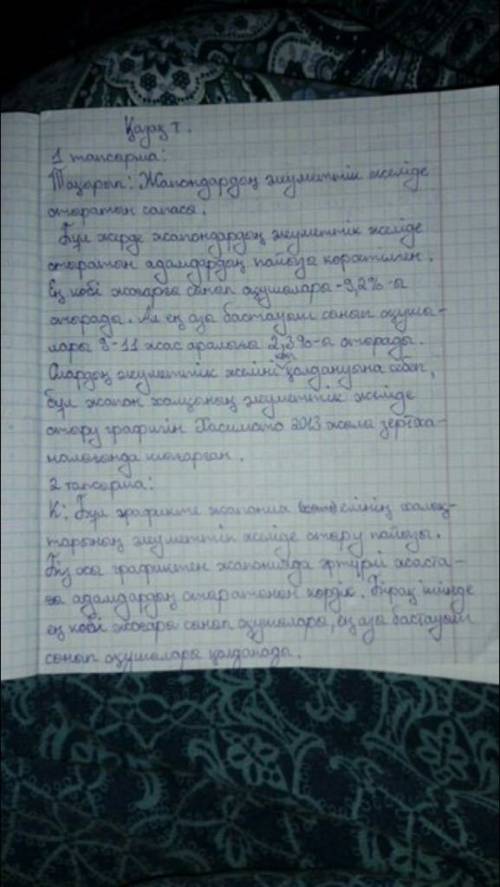 Қазақ т.
1 тапсырма:
Тақырып: Жапондардың әлеуметтік желіде
отыратын сапасы.
Бұл жерде жапондардың әлеуметтік желіде
отыратын адамдардың пайызы көрсетілген.
Ең көбі жоғарғы сынып оқушылары - 9,2% -ы
отырады. Ал ең азы бастауыш сынып оқушы-
лары 8-11 жас аралығы 2,3%-ы отырады.
Олардың әлеуметтік желіні көп қолдануына себеп,
бұл жапон халқының әлеуметтік желіде
отыру графигін Хасимото 2013 жылы зертха-
малығында шығарған.
2 тапсырма:
К: Бұл графикте жапония елінің халық-
тарының әлеуметтік желіде отыру пайызы.
Біз осы графиктен жапонияда әртүрлі жаста-
ғы адамдардың отыратынын көрдік. Бірақ ішінде
ең көбі жоғары сынып оқушылары, ең азы бастауыш
сынып оқушылары қолданады.